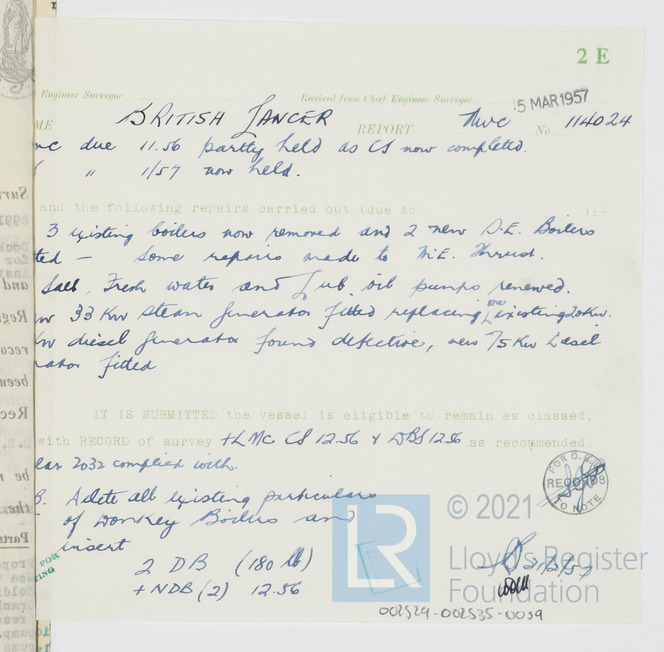 2 E
Engineer Surveyor
Received from Chief Engineer Surveyor
5 MAR 1957
ME BRITISH LANCER REPORT Nwc No. 114024
mc due 11.56 partly held as CS now completed.
" 1/57 now held.
and the following repairs carried out (due to ):-
3 existing boilers now removed and 2 new D.E. Boilers
ted - Some repairs made to M.E. Thrust.
Salt, Fresh water and Lub. oil pumps renewed.
33 Kw steam generator fitted replacing one existing 20Kw.
Kw diesel generator found defective, new 75Kw diesel
rator fitted
IT IS SUBMITTED the vessel is eligible to remain as classed,
with RECORD of survey +LMC CS 12.56 & DBS 12.56 as recommended.
lar 2032 complied with.
B. Delete all existing particulars
of Donkey Boilers and
insert
2 DB (180 lb)
+NDB (2) 12.56
FOR
RECORDS
TO NOTE
21/3/57
LR
© 2021
Lloyd's Register
Foundation
002529-002535-0059